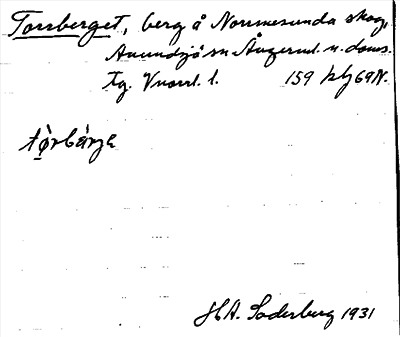 Torrberget, berg å Norrmesunda skog,
Anundsjö sn Ångerml. n. doms.
tg. Vnorrl. l. 159 kbj 69N.
tørbärjɛ
H.A. Söderberg 1931